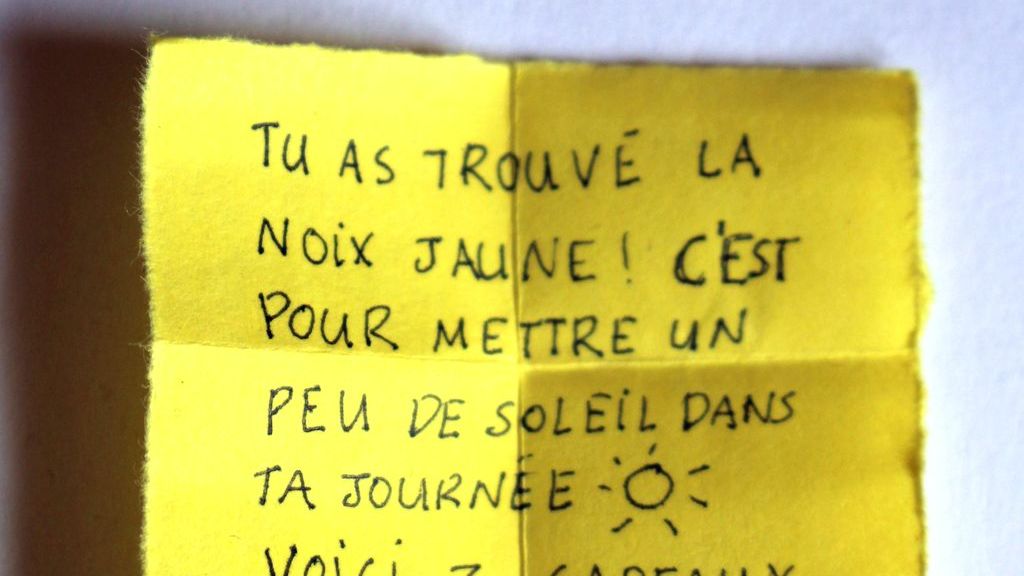 TU AS TROUVÉ LA
NOIX JAUNE! C'EST
POUR METTRE UN
PEU DE SOLEIL DANS
TA JOURNÉE
VOICI